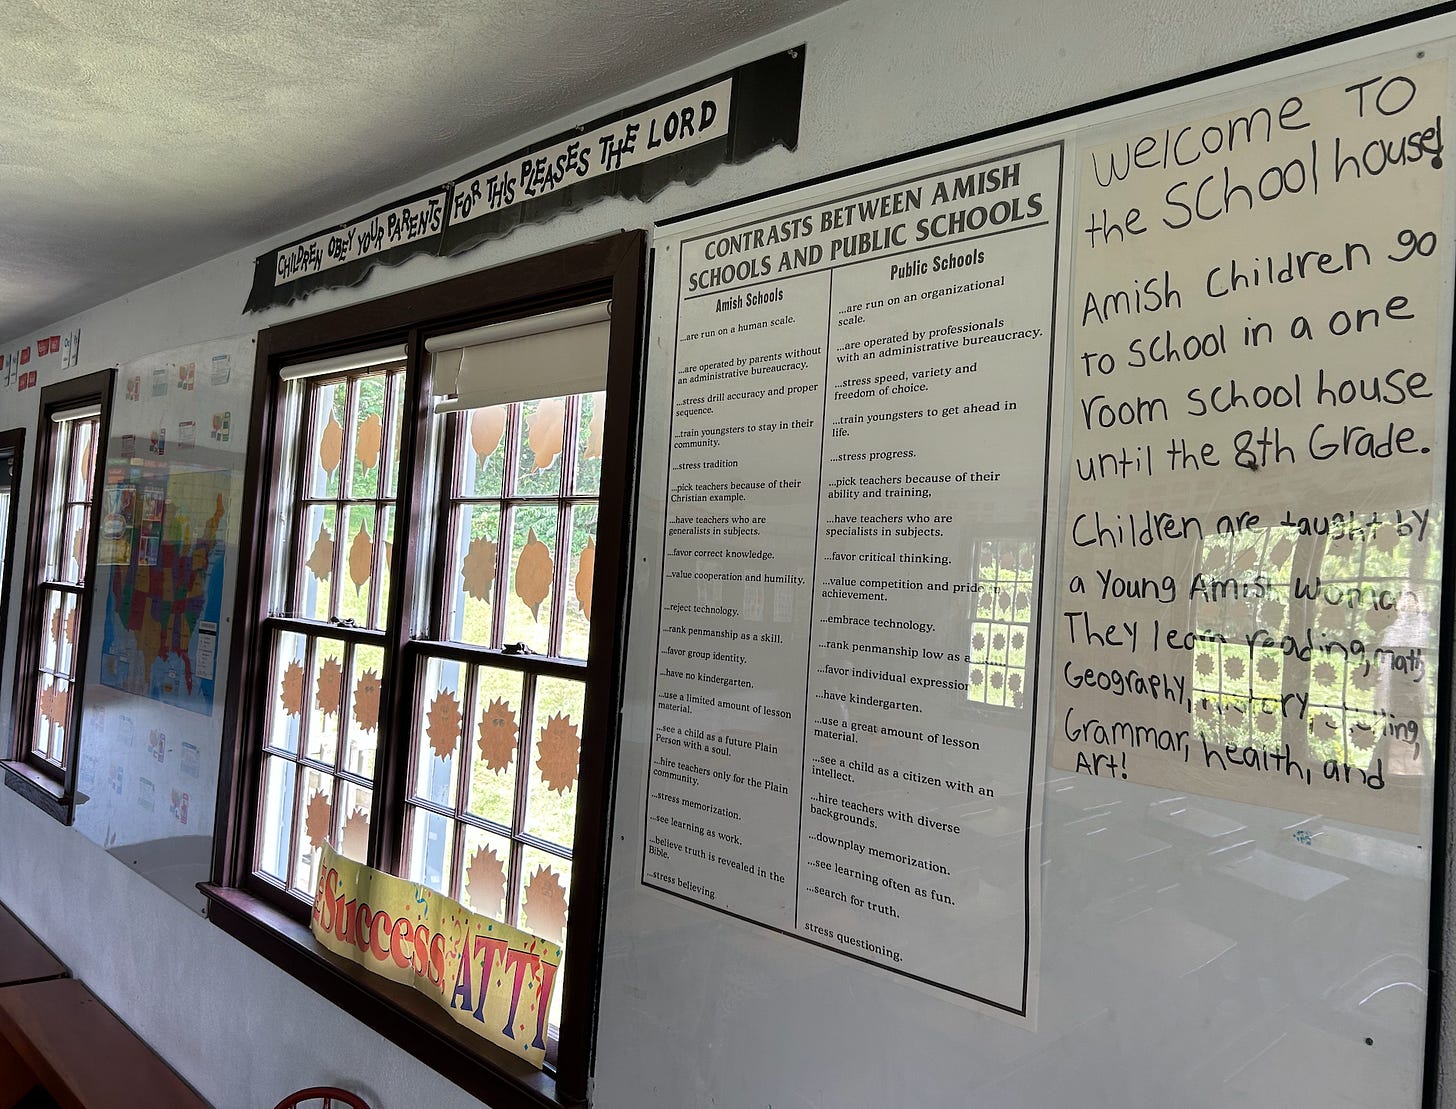 CHILDREN OBEY YOUR PARENTS FOR THIS PLEASES THE LORD
Success ATTI
CONTRASTS BETWEEN AMISH
SCHOOLS AND PUBLIC SCHOOLS
Amish Schools
...are run on a human scale.
...are operated by parents without
an administrative bureaucracy.
...stress drill accuracy and proper
sequence.
...train youngsters to stay in their
community.
...stress tradition
...pick teachers because of their
Christian example.
...have teachers who are
generalists in subjects.
...favor correct knowledge.
...value cooperation and humility.
...reject technology.
...rank penmanship as a skill.
...favor group identity.
...have no kindergarten.
...use a limited amount of lesson
material.
...see a child as a future Plain
Person with a soul.
...hire teachers only for the Plain
community.
...stress memorization.
...see learning as work.
...believe truth is revealed in the
Bible.
...stress believing
Public Schools
...are run on an organizational
scale.
...are operated by professionals
with an administrative bureaucracy.
...stress speed, variety and
freedom of choice.
...train youngsters to get ahead in
life.
...stress progress.
...pick teachers because of their
ability and training,
...have teachers who are
specialists in subjects.
...favor critical thinking.
...value competition and pride in
achievement.
...embrace technology.
...rank penmanship low as a
...favor individual expression
...have kindergarten.
...use a great amount of lesson
material.
...see a child as a citizen with an
intellect.
...hire teachers with diverse
backgrounds.
...downplay memorization.
...see learning often as fun.
...search for truth.
stress questioning.
Welcome To
the School house!
Amish Children go
to school in a one
room school house
until the 8th Grade.
Children are taught by
a Young Amish Woman
They learn reading, math,
Geography, history,
Grammar, health, and
Art!